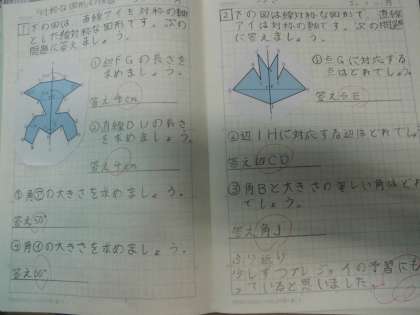 対称な図形の作図
1 下の図は、直線アイを対称の軸
とした線対称な図形です。次の
問題に答えましょう。
①辺FGの長さを
求めましょう。
答え4cm
②直線DLの長さ
を求めましょう。
答え4cm
③角㋐の大きさを求めましょう。
答え50°
④角㋑の大きさを求めましょう。
2 下の図は線対称な図形で、直線
アイは対称の軸です。次の問題
に答えましょう。
①点Gに対応する
点はどれでしょう。
答え点E
②辺IHに対応する辺はどれでしょ
答え辺CD
③角Bと大きさの等しい角はどれ
でしょう。
答え角J
ふり返り
少しずつアレジョイの予習にも
っていると思いました。